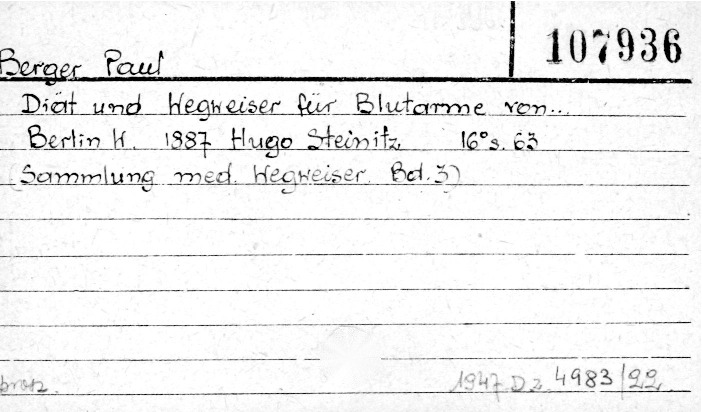 107936
Berger Paul
Diät und Wegweiser für Blutarme von...
Berlin W. 1887 Hugo Steinitz 16° s. 63
(Sammlung med. Wegweiser. Bd. 3)
brosz. 1947 Dz. 4983/22